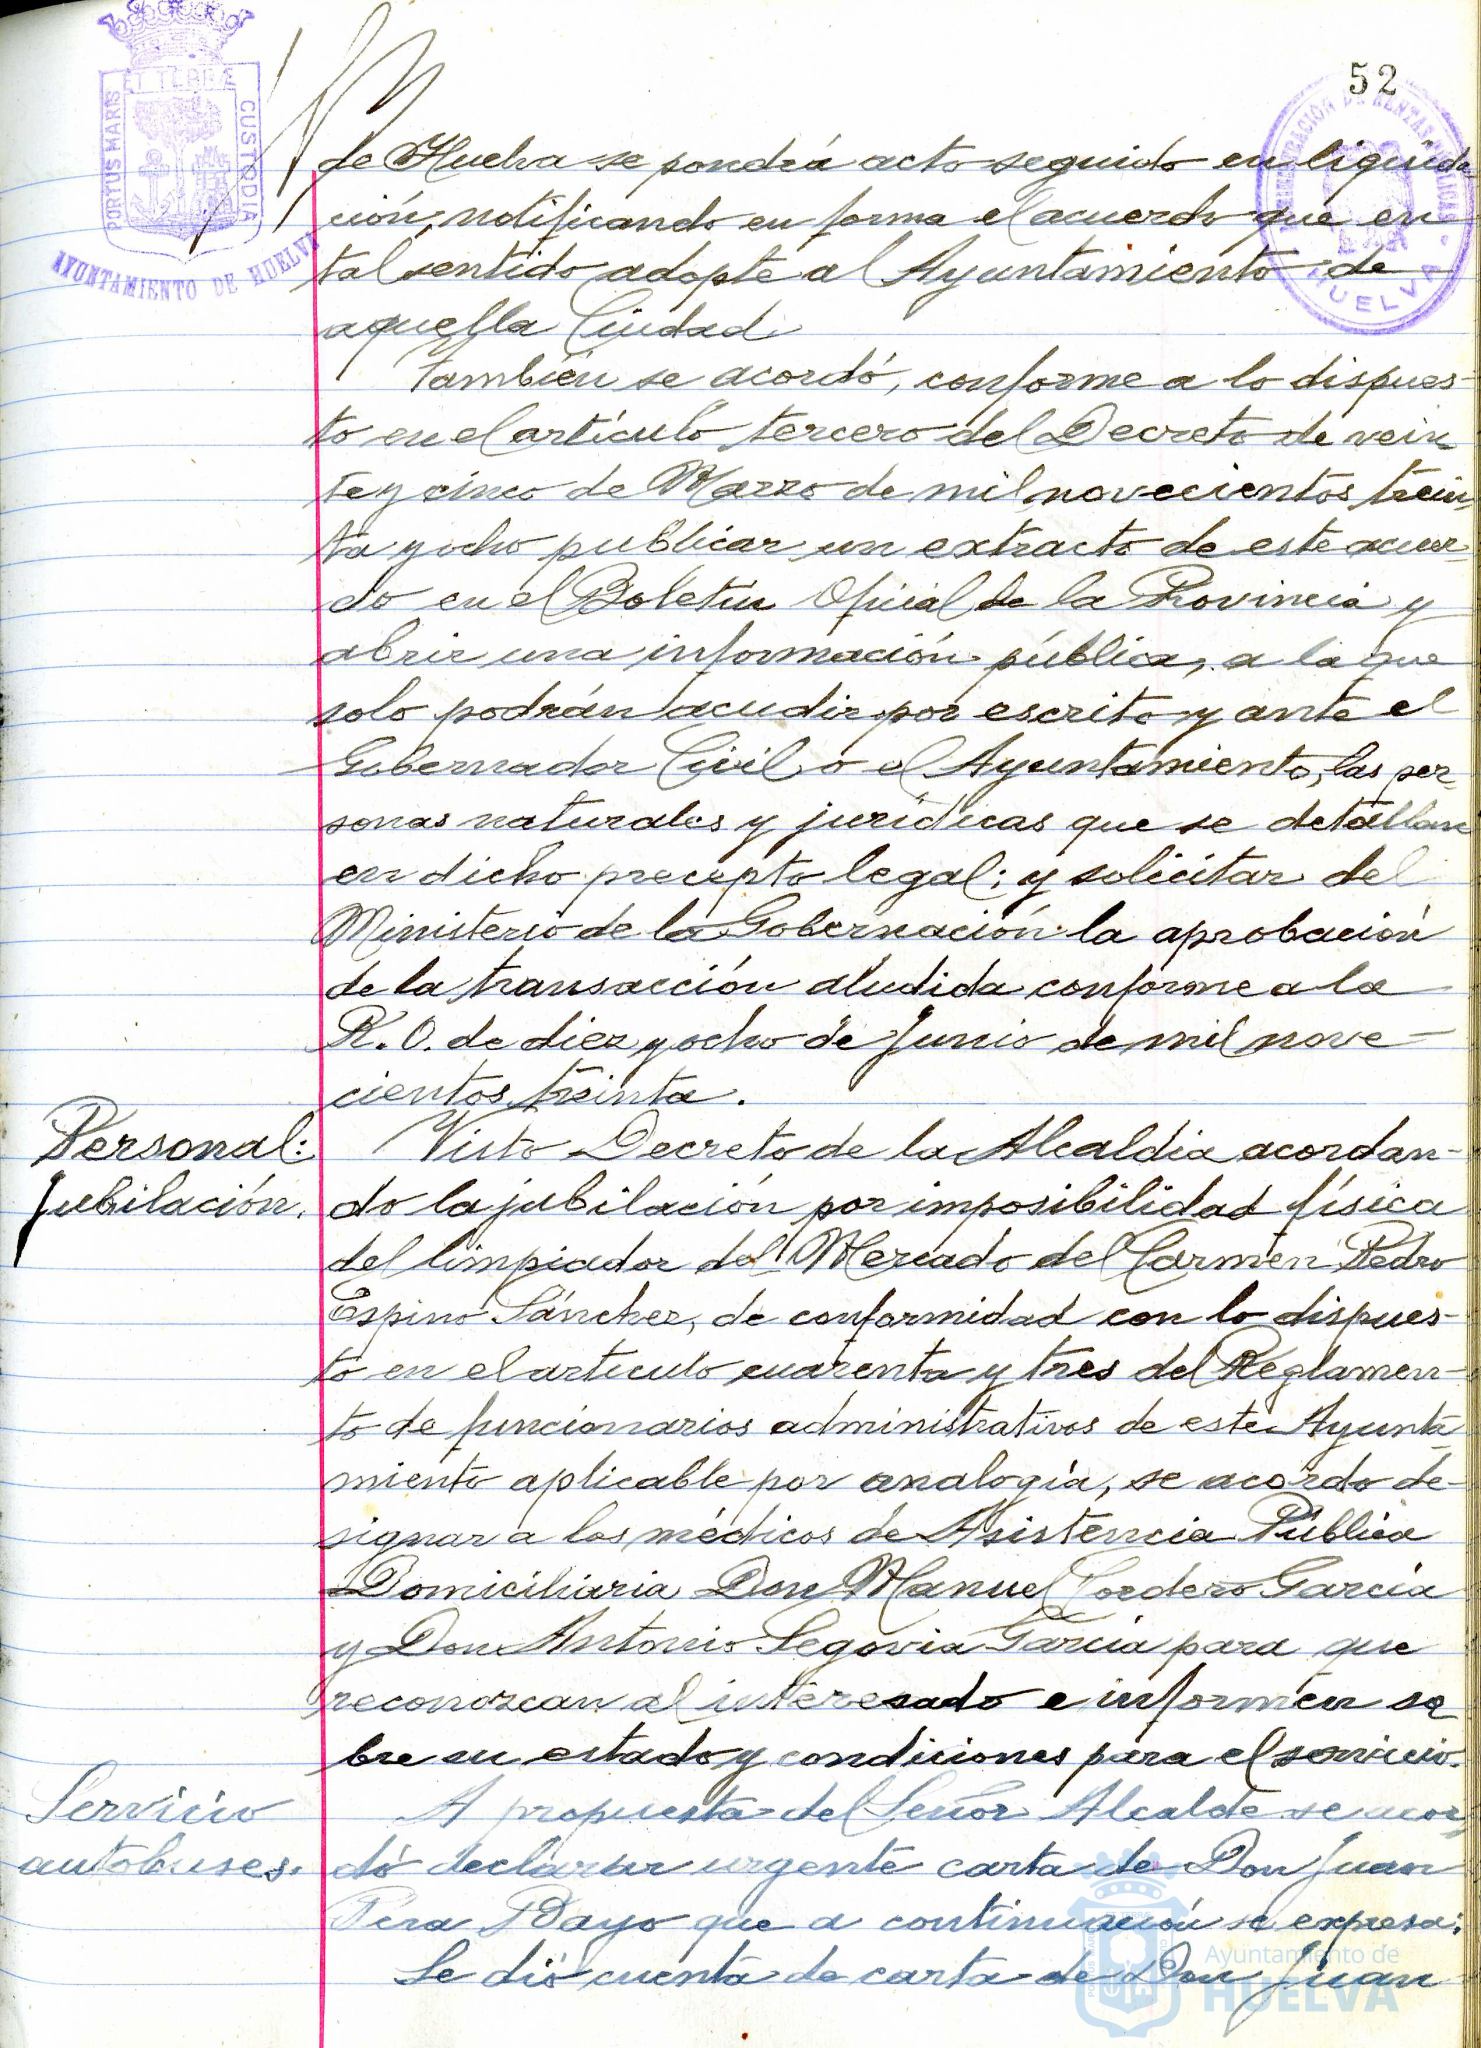 52
PORTUS MARIS ET TERRÆ CUSTODIA
AYUNTAMIENTO DE HUELVA
ADMINISTRACIÓN DE RENTAS PÚBLICAS
HUELVA
de Huelva se pondrá acto seguido en liquida
ción, notificando en forma el acuerdo que en
tal sentido adopte al Ayuntamiento de
aquella Ciudad
También se acordó, conforme a lo dispues-
to en el artículo tercero del Decreto de vein
te y cinco de Marzo de mil novecientos trein
ta y ocho publicar un extracto de este acuer-
do en el Boletín Oficial de la Provincia y
abrir una información pública, a la que
solo podrán acudir por escrito y ante el
Gobernador Civil o el Ayuntamiento, las per-
sonas naturales y jurídicas que se detallan
en dicho precepto legal; y solicitar del
Ministerio de la Gobernación la aprobación
de la transacción aludida conforme a la
R. O. de diez y ocho de Junio de mil nove-
cientos treinta.
Personal:
Jubilación.
Visto Decreto de la Alcaldia acordan-
do la jubilación por imposibilidad física
del limpiador del Mercado del Carmen Pedro
Espino Sánchez, de conformidad con lo dispues-
to en el articulo cuarenta y tres del Reglamen-
to de funcionarios administrativos de este Ayunta-
miento aplicable por analogía, se acordo de-
signar a los médicos de Asistencia Pública
Domiciliaria Don Manuel Cordero García
y Don Antonio Segovia García para que
reconozcan al interesado e informen so
bre su estado y condiciones para el servicio.
Servicio
autobuses.
A propuesta del Señor Alcalde se acor
dó declarar urgente carta de Don Juan
Pera Bayo que a continuación se expresa:
Se dió cuenta de carta de Don Juan
Ayuntamiento de
HUELVA